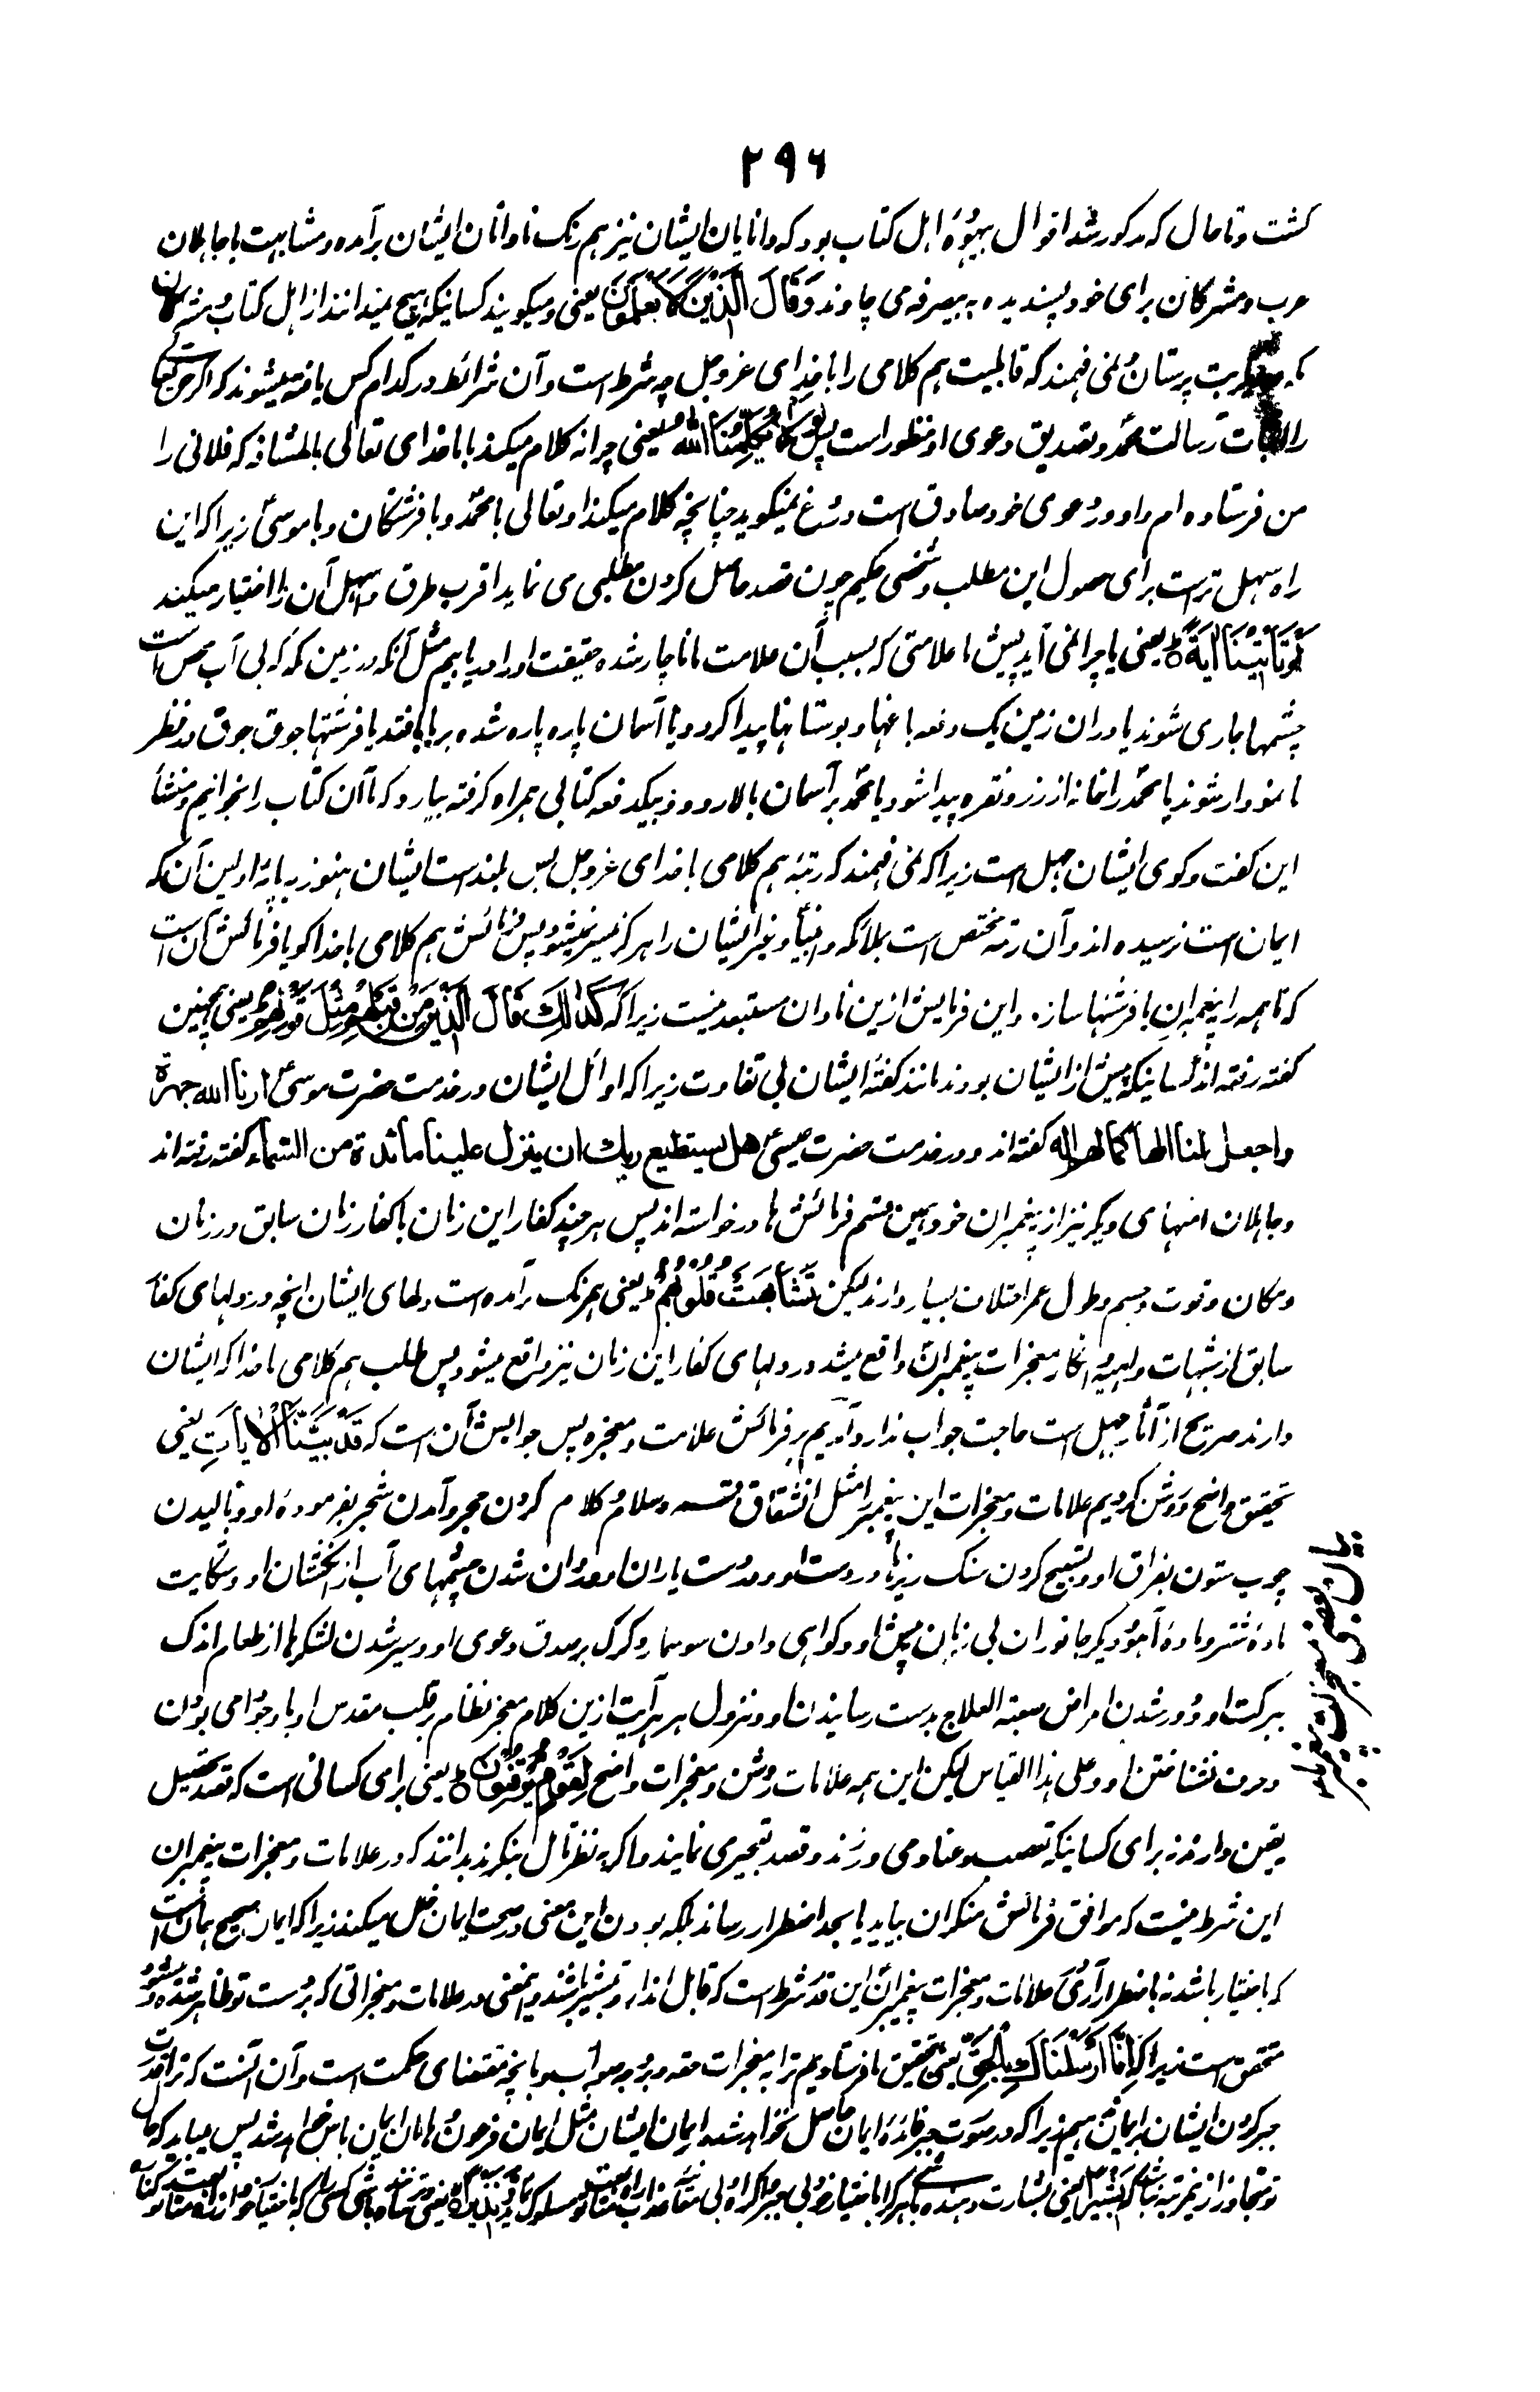 ۲۹۶
کشت و تا حال که مذکور شد اقوال بیهوده اهل کتاب بود که دانایان ایشان نیز هم رنک نادانان ایشان برآمده و مشابهت با جاهلان
عرب و مشرکان برای خود پسندیده به بیصرفه می چاوند وَقَالَ الَّذِيْنَ لَا يَعْلَمُوْنَ یعنی و میکویند کسانیکه هیچ نمیدانند از اهل کتاب و مشرکان
که بت پرستان اند نمی فهمند که قابلیت هم کلامی را با خدای عزوجل چه شرط است و آن شرائط در کدام کس یافته میشوند که اکر حق تعالی
را اثبات رسالت محمد و تصدیق دعوی او منظور است پس لَوْلَا يُكَلِّمُنَا اللّٰهُ یعنی چرا نه کلام میکند با ما خدای تعالی بالمشافه که فلانی را
من فرستاده ام و او در دعوی خود صادق است دروغ نمیکوید چنانچه کلام میکند او تعالی با محمد و با فرشتکان و با موسیٰ زیرا که این
راه سهل تر است برای حصول این مطلب و شخصی حکیم چون قصد حاصل کردن مطلبی می نماید اقرب طرق و اسهل آن را اختیار میکند
اَوْ تَاْتِيْنَا اٰيَةٌ ط یعنی یا چرا نمی آید پیش ما علامتی که بسبب آن علامت ما ناچار شده حقیقت او را دریابیم مثل آنکه در زمین مکه که بی آب محض است
چشمها جاری شوند یا در ان زمین یک دفعه باغها و بوستانها پیدا کردد و یا آسمان پاره پاره شده بر ما بیفتد یا فرشتها جوق جوق در نظر
ما نمودار شوند یا محمد را خانه از زر و نقره پیدا شود یا محمد بر آسمان بالا رود و بیکدفعه کتابی همراه کرفته بیارد که ما آن کتاب را بخوانیم و منشأ
این کفت و کوی ایشان جهل است زیرا که نمی فهمند که رتبه هم کلامی با خدای عزوجل بس بلند است ایشان هنوز به پایه اولین آن که
ایمان است نرسیده اند و آن رتبه مختص است بملائکه و انبیا و غیر ایشان را هرکز میسر نمیشود پس فرمائش هم کلامی با خدا کویا فرمائش آن است
که ما همه را پیغمبران یا فرشتها ساز. و این فرمایش ازین نادان مستبعد نیست زیرا که كَذٰلِكَ قَالَ الَّذِيْنَ مِنْ قَبْلِهِمْ مِثْلَ قَوْلِهِمْ یعنی همچنین
کفته رفته اند کسانیکه پیش از ایشان بودند مانند کفته ایشان بی تفاوت زیرا که اوائل ایشان در خدمت حضرت موسیٰ ارنا الله جهرة
واجعل لنا الها کما لهم اله کفته اند و در خدمت حضرت عیسیٰ هل یستطیع ربك ان ینزل علینا مائدة من السماء کفته رفته اند
و جاهلان امتهای دیکر نیز از پیغمبران خود همین قسم فرمائش ها درخواسته اند پس هر چند کفار این زمان با کفار زمان سابق در زمان
و مکان و قوت جسم و طول عمر اختلاف بسیار دارند لیکن تَشَابَهَتْ قُلُوْبُهُمْ ط یعنی همرنک برآمده است دلهای ایشان انچه در دلهای کفار
سابق از شبهات واهیه و انکار معجزات پیغمبران واقع میشد در دلهای کفار این زمان نیز واقع میشود پس طلب هم کلامی با خدا که ایشان
دارند صریح از آثار جهل است حاجت جواب ندارد آمدیم بر فرمائش علامت و معجزه پس جوابش آن است که قَدْ بَيَّنَّا الْاٰيَاتِ یعنی
تحقیق واضح و روشن کردیم علامات و معجزات این پیغمبر را مثل انشقاق قمر و سلام و کلام کردن حجر و آمدن شجر بفرموده او و نالیدن
چوب ستون بفراق او و تسبیح کردن سنک ریزها در دست او و در دست یاران او و روان شدن چشمهای آب از انکشتان او و شکایت
ماده شتر و ماده آهو و دیکر جانوران بی زبان پیش او و کواهی دادن سوسمار و کرک بر صدق دعوی او و سیر شدن لشکرها از طعام اندک
ببرکت او و دور شدن امراض صعبة العلاج بدست رسانیدن او و نزول هر هر آیت ازین کلام معجز نظام بر قلب مقدس او با وجود امی بودن
و حرف نشناختن او و علی هذا القیاس لیکن این همه علامات روشن و معجزات واضح لِقَوْمٍ يُّوْقِنُوْنَ ط یعنی برای کسانی است که قصد تحصیل
یقین دارند نه برای کسانیکه تعصب و عناد می ورزند و قصد بی خبری نمایند و اکر به نظر تأمل بنکرند بدانند که در علامات و معجزات پیغمبران
این شرط نیست که موافق فرمائش منکران بیاید یا بحد اضطرار رساند بلکه بودن این معنی در صحت ایمان خلل میکند زیرا که ایمان صحیح همان است
که باختیار باشد نه باضطرار آری علامات و معجزات پیغمبران این قدر شرط است که قابل انذار و تبشیر باشند و اینمعنی در علامات و معجزاتی که بر دست تو ظاهر شده و میشود
متحقق است زیرا که اِنَّا اَرْسَلْنَاكَ بِالْحَقِّ یعنی تحقیق ما فرستادیم ترا به معجزات حقه و بر وجه صواب و بانچه مقتضای حکمت است و آن آنست که ترا قدرت
جبر کردن ایشان بر ایمان نه دهیم زیرا که در صورت جبر فائده ایمان حاصل نخواهد شد و ایمان ایشان مثل ایمان فرعون و هامان ایمان باس خواهد شد پس میباید که حال
تو متجاوز ازین مرتبه نباشد که بَشِيْرًا یعنی بشارت دهنده باشی هر کرا باختیار خود بی جبر و اکراه
بیان بعضی معجزات پیغمبر ما